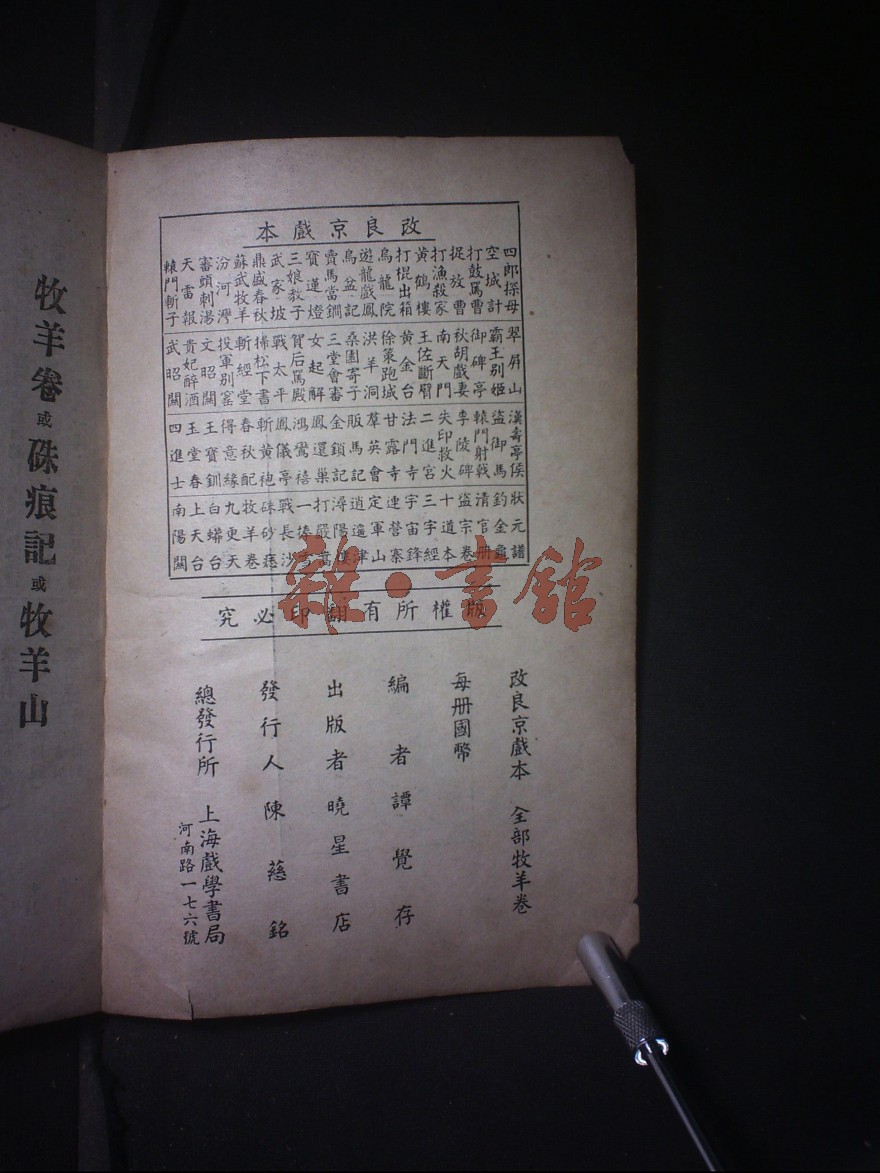 改良京戲本
四郎探母
空城計
打鼓罵曹
捉放曹
打漁殺家
黃鶴樓
打棍出箱
烏龍院
遊龍戲鳳
烏盆記
賣馬當鐧
寶蓮燈
三娘教子
武家坡
鼎盛春秋
蘇武牧羊
汾河灣
審頭刺湯
天雷報
轅門斬子
翠屏山
霸王别姬
御碑亭
秋胡戲妻
南天門
王佐斷臂
黃金台
徐策跑城
洪羊洞
桑園寄子
三堂會審
女起解
賀后罵殿
戰太平
掃松下書
斬經堂
投軍别窰
文昭關
貴妃醉酒
武昭關
漢壽亭侯
盜御馬
轅門射戟
李陵碑
失印救火
二進宮
法門寺
甘露寺
羣英會
販馬記
金鎖記
鳳還巢
鴻鸞禧
鳳儀亭
斬黃袍
春秋配
得意緣
王寶釧
玉堂春
四進士
狀元譜
釣金龜
清官册
盜宗卷
十道本
三字經
宇宙鋒
連營寨
定軍山
逍遙津
潯陽樓
打嚴嵩
一捧雪
戰長沙
硃砂痣
牧羊卷
九更天
白蟒台
上天台
南陽關
版權所有翻印必究
改良京戲本 全部牧羊卷
每册國幣
編者譚覺存
出版者曉星書店
發行人陳慈銘
總發行所 上海戲學書局
河南路一七六號
牧羊卷或硃痕記或牧羊山
雜·書館